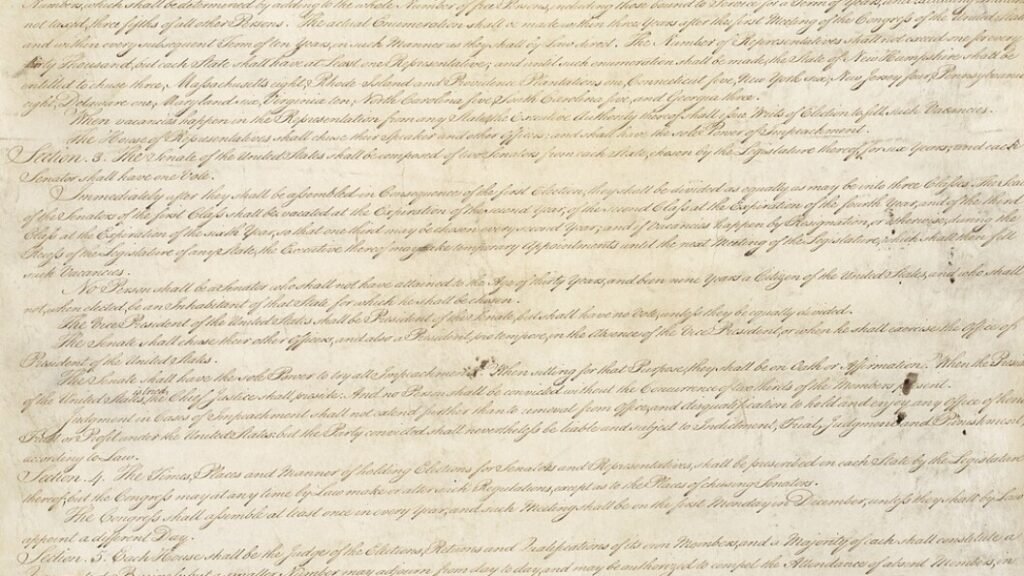 Numbers, which shall be determined by adding to the whole Number of free Persons, including those bound to Service for a Term of Years, and excluding Indians
not taxed, three fifths of all other Persons. The actual Enumeration shall be made within three Years after the first Meeting of the Congress of the United States,
and within every subsequent Term of ten Years, in such Manner as they shall by Law direct. The Number of Representatives shall not exceed one for every
thirty Thousand, but each State shall have at Least one Representative; and until such enumeration shall be made, the State of New Hampshire shall be
entitled to chuse three, Massachusetts eight, Rhode Island and Providence Plantations one, Connecticut five, New York six, New Jersey four, Pennsylvania
eight, Delaware one, Maryland six, Virginia ten, North Carolina five, South Carolina five, and Georgia three.
When vacancies happen in the Representation from any State, the Executive Authority thereof shall issue Writs of Election to fill such Vacancies.
The House of Representatives shall chuse their Speaker and other Officers; and shall have the sole Power of Impeachment.
Section. 3. The Senate of the United States shall be composed of two Senators from each State, chosen by the Legislature thereof, for six Years; and each
Senator shall have one Vote.
Immediately after they shall be assembled in Consequence of the first Election, they shall be divided as equally as may be into three Classes. The Seats
of the Senators of the first Class shall be vacated at the Expiration of the second Year, of the second Class at the Expiration of the fourth Year, and of the third
Class at the Expiration of the sixth Year, so that one third may be chosen every second Year; and if Vacancies happen by Resignation, or otherwise, during the
Recess of the Legislature of any State, the Executive thereof may make temporary Appointments until the next Meeting of the Legislature, which shall then fill
such Vacancies.
No Person shall be a Senator who shall not have attained to the Age of thirty Years, and been nine Years a Citizen of the United States, and who shall
not, when elected, be an Inhabitant of that State for which he shall be chosen.
The Vice President of the United States shall be President of the Senate, but shall have no Vote, unless they be equally divided.
The Senate shall chuse their other Officers, and also a President pro tempore, in the Absence of the Vice President, or when he shall exercise the Office of
President of the United States.
The Senate shall have the sole Power to try all Impeachments. When sitting for that Purpose, they shall be on Oath or Affirmation. When the President
of the United States is tried, the Chief Justice shall preside: And no Person shall be convicted without the Concurrence of two thirds of the Members present.
Judgment in Cases of Impeachment shall not extend further than to removal from Office, and disqualification to hold and enjoy any Office of honor,
Trust or Profit under the United States: but the Party convicted shall nevertheless be liable and subject to Indictment, Trial, Judgment and Punishment,
according to Law.
Section. 4. The Times, Places and Manner of holding Elections for Senators and Representatives, shall be prescribed in each State by the Legislature
thereof; but the Congress may at any time by Law make or alter such Regulations, except as to the Places of chusing Senators.
The Congress shall assemble at least once in every Year, and such Meeting shall be on the first Monday in December, unless they shall by Law
appoint a different Day.
Section. 5. Each House shall be the Judge of the Elections, Returns and Qualifications of its own Members, and a Majority of each shall constitute a
Quorum to do Business; but a smaller Number may adjourn from day to day, and may be authorized to compel the Attendance of absent Members, in